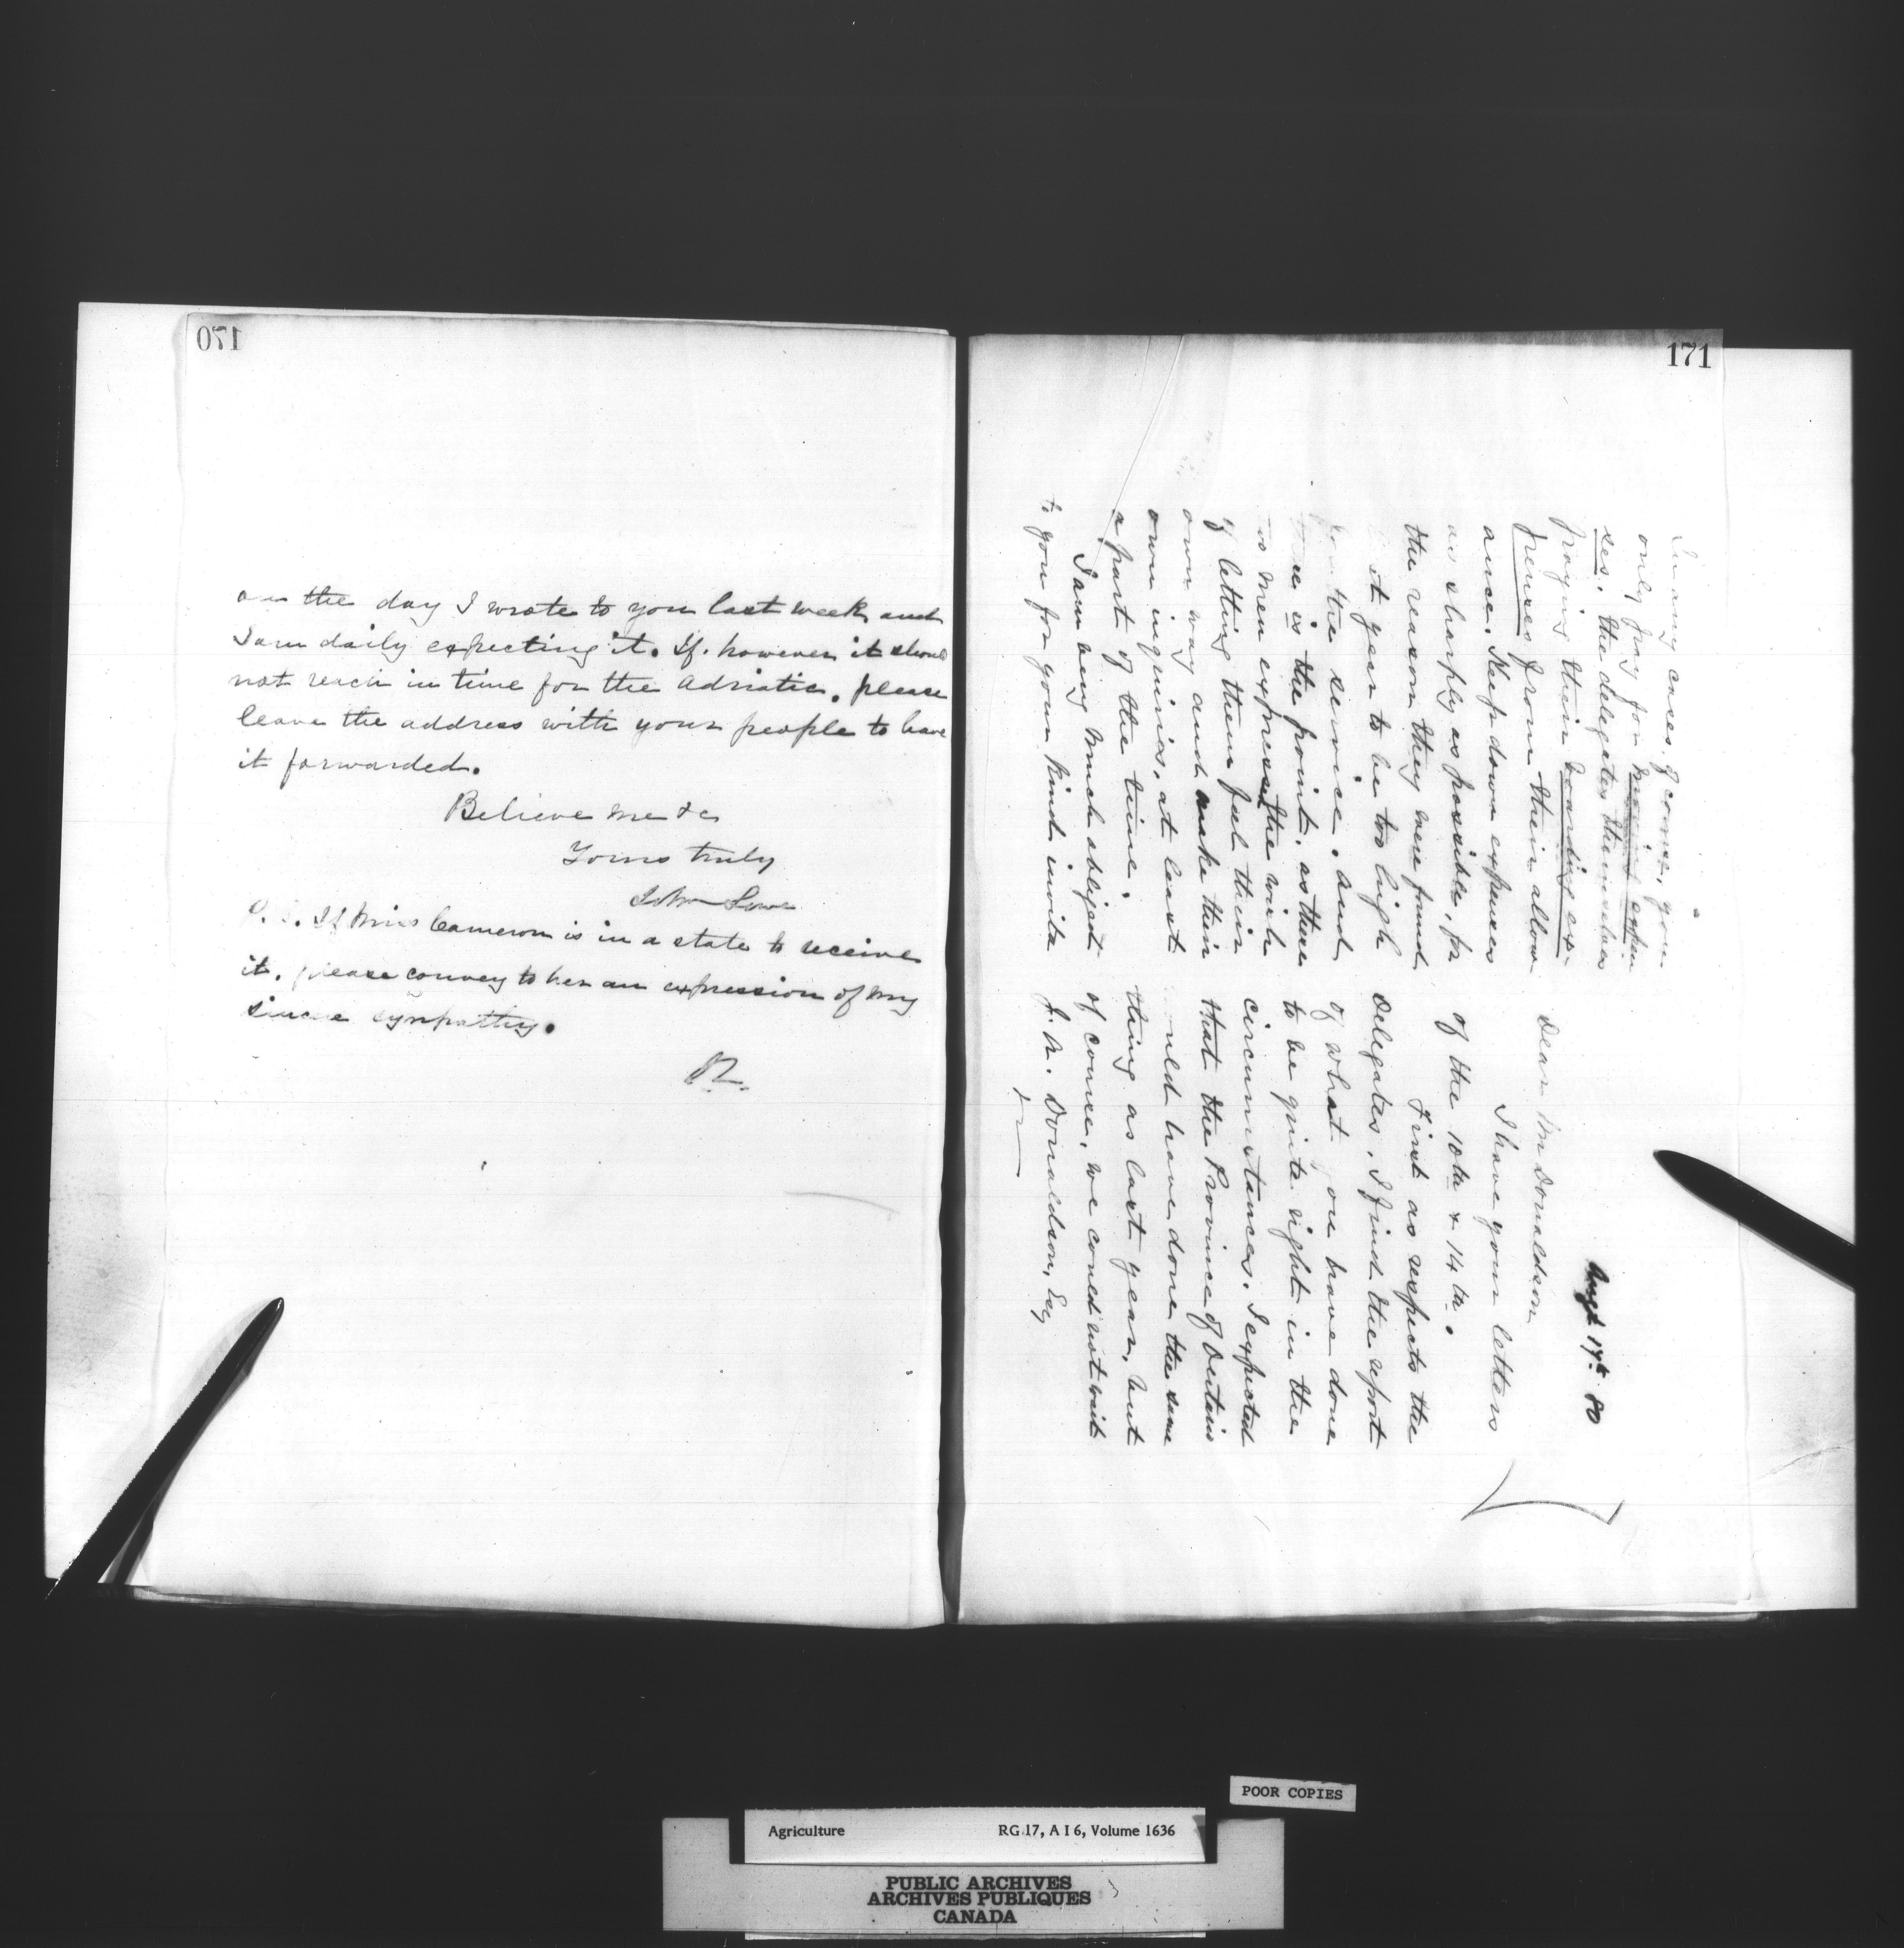 170
on the day I wrote to you last week and
I am daily expecting it. If however it should
not reach in time for the Adriatic, please
leave the address with your people to have
it forwarded.
Believe me &c
Yours truly
John Lowe
P.S. If Miss Cameron is in a state to receive
it, please convey to her an expression of my
sincere sympathy.
171
Augt 17th 80
Dear Mr Donaldson
I have your letters
of the 10th & 14th.
First as respects the
Delegates, I find the report
of what you have done
to be quite right in the
circumstances. I expected
that the Province of Ontario
would have done the same
thing as last year, but
of course, we could not wait
J. A. Donaldson, Esq
In any cases, of course, you
only pay for moving expen
ses, the delegates themselves
paying their boarding ex-
penses from their allow
ance. Keep down expenses
as sharply as possible, for
the reason they were found
last year to be too high
for the service, and
there is the point, as these
men expressed the wish
of letting them feel their
own way and make their
own inquiries, at least
a part of the time.
I am very much obliged
to you for your kind invita
Agriculture RG 17, A I 6, Volume 1636
POOR COPIES
PUBLIC ARCHIVES
ARCHIVES PUBLIQUES
CANADA